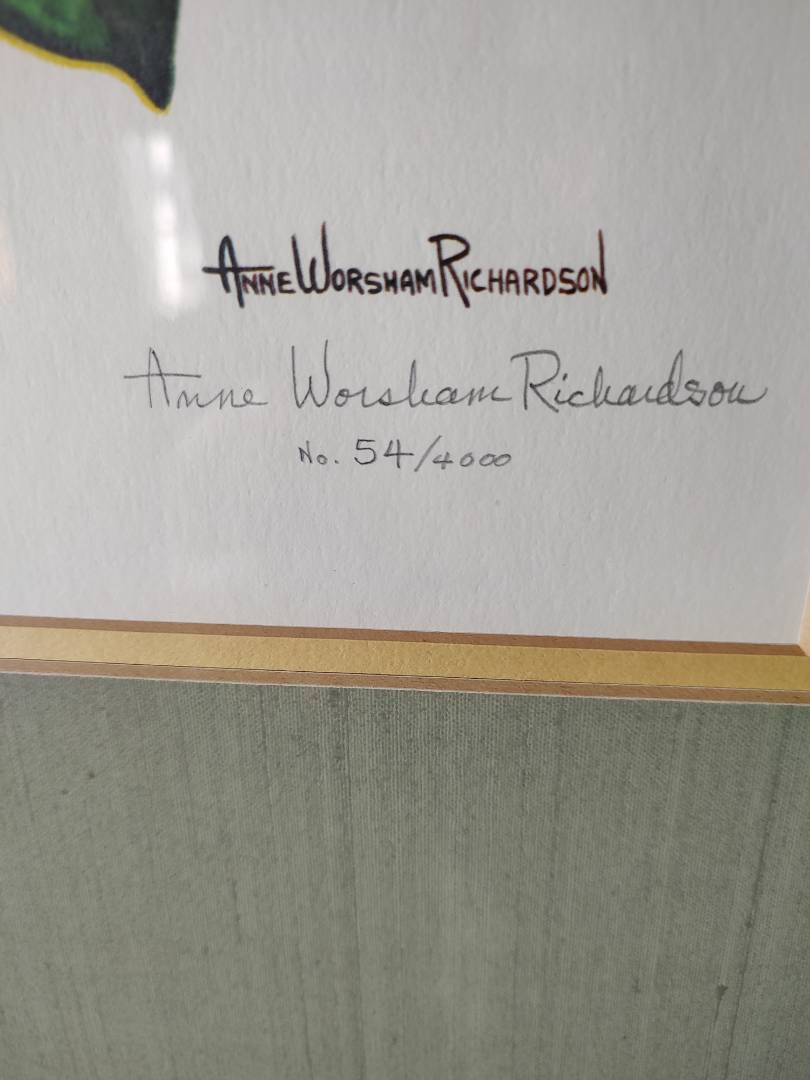 Anne Worsham Richardson
Anne Worsham Richardson
No. 54/4000